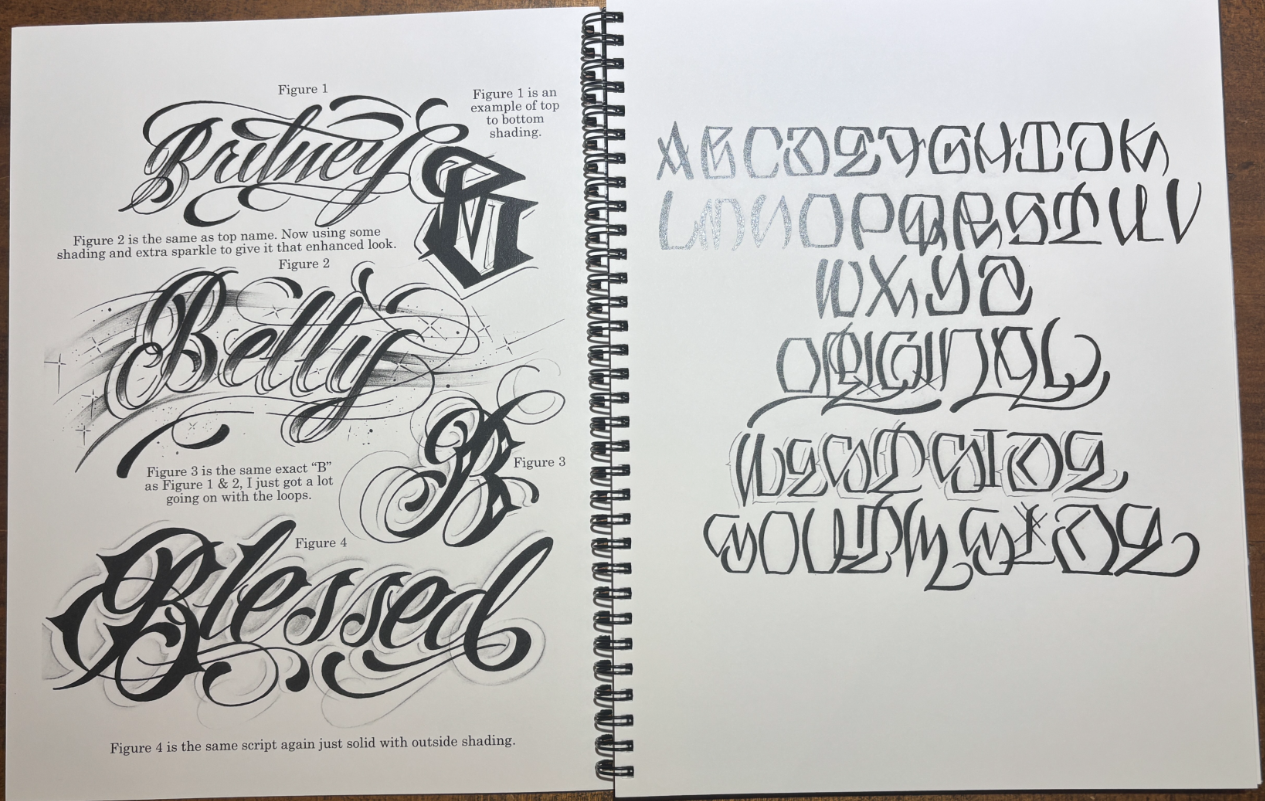 Figure 1
Figure 1 is an
example of top
to bottom
shading.
Britney
B
Figure 2 is the same as top name. Now using some
shading and extra sparkle to give it that enhanced look.
Figure 2
Betty
B
Figure 3 is the same exact “B”
as Figure 1 & 2, I just got a lot
going on with the loops.
Figure 3
Figure 4
Blessed
Figure 4 is the same script again just solid with outside shading.
ABCDEFGHIJK
LMNOPQRSTUV
WXYZ
ORIGINAL
WESTSIDE
SOUTH SIDE